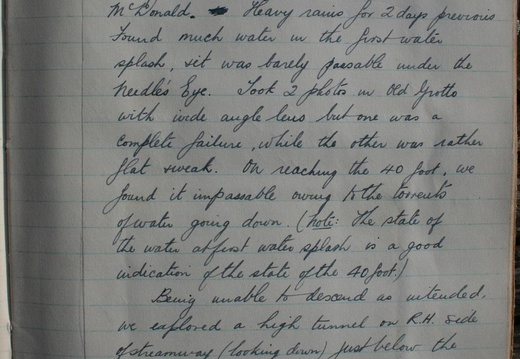 McDonald. Heavy rains for 2 days previous
Found much water in the first water
splash, & it was barely passable under the
Needle's Eye. Took 2 photos in Old Grotto
with wide angle lens but one was a
complete failure, while the other was rather
flat & weak. On reaching the 40 foot, we
found it impassable owing to the torrents
of water going down. (Note: The state of
the water at first water splash is a good
indication of the state of the 40 foot)
Being unable to descend as intended,
we explored a high tunnel on R.H. side
of streamway (looking down) just below the